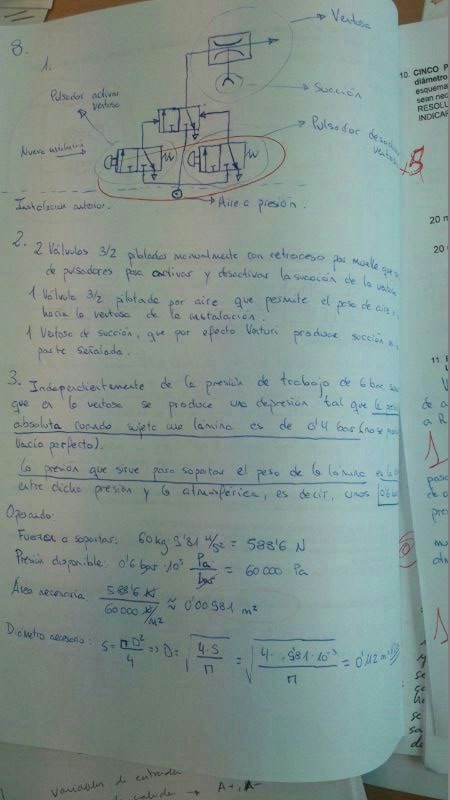 8.
1.
Ventosa
Succión
Pulsador activar
ventosa
Pulsador
ventosa
Nueva
Instalación anterior.
Aire a presión.
2.
2 Válvulas 3/2 pilotadas manualmente con retroceso por muelle que
de pulsadores para activar y desactivar la succión de la ventosa
1 Válvula 3/2 pilotada por aire que permite el paso de aire
hacia la ventosa de la instalación.
1 Ventosa de succión, que por efecto Venturi produce succión
parte señalada.
3. Independientemente de la presión de trabajo de 6 bar
que en la ventosa se produce una depresión tal que la
absoluta cuando sujeta una lámina es de 0'4 bar (no se
vacío perfecto).
La presión que sirve para soportar el peso de la lámina es la
entre dicha presión y la atmosférica, es decir, unos 0'6
Operando:
Fuerza a soportar: 60 kg 9'81 N/s² = 588'6 N
Presión disponible: 0'6 bar · 10⁵ Pa/bar = 60 000 Pa
Área necesaria: 588'6 N / 60 000 N/m² ≈ 0'00981 m²
Diámetro necesario: S = πD²/4 => D = √(4·S/π) = √(4·9'81·10⁻³/π) = 0'112 m
10. CINCO P
diámetro
esquema
sean nec
RESOLU
INDICAR
20 m
20
11
variables de entrada
A+, A-